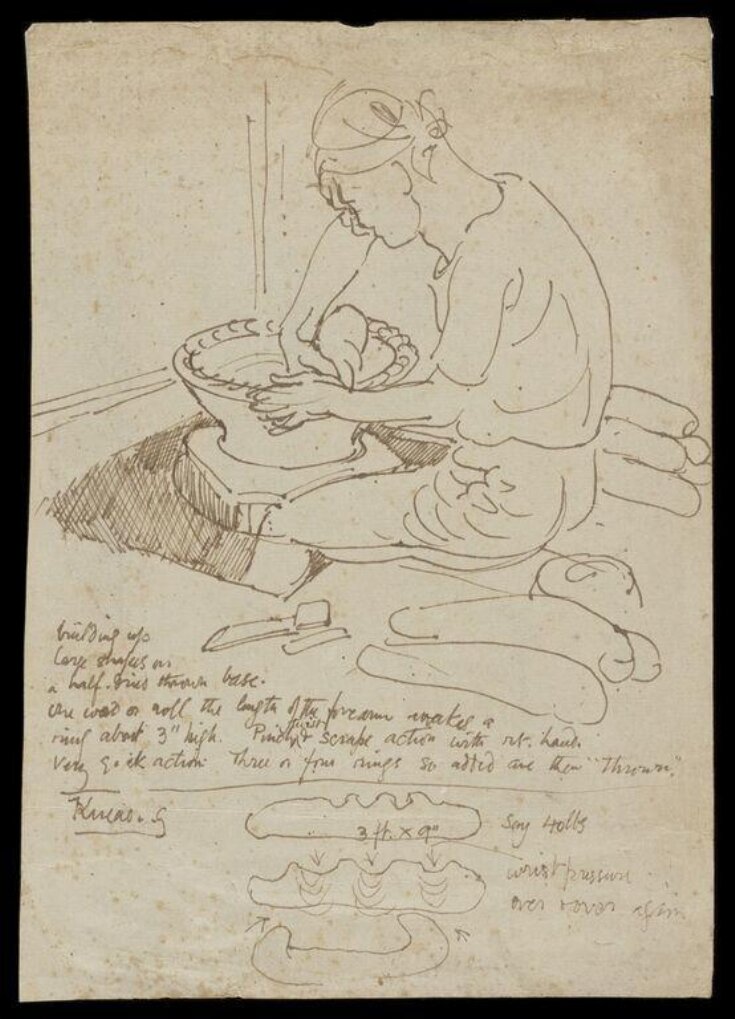 building up
large shapes on
a half-dried thrown base.
one wad or roll the length of the forearm makes a
ring about 3" high. Pinch, twist & scrape action with rt. hand.
Very quick action Three or four rings so added are then "thrown".
Kneading
3 ft. x 9"
say 40lbs
wrist pressure
over & over again